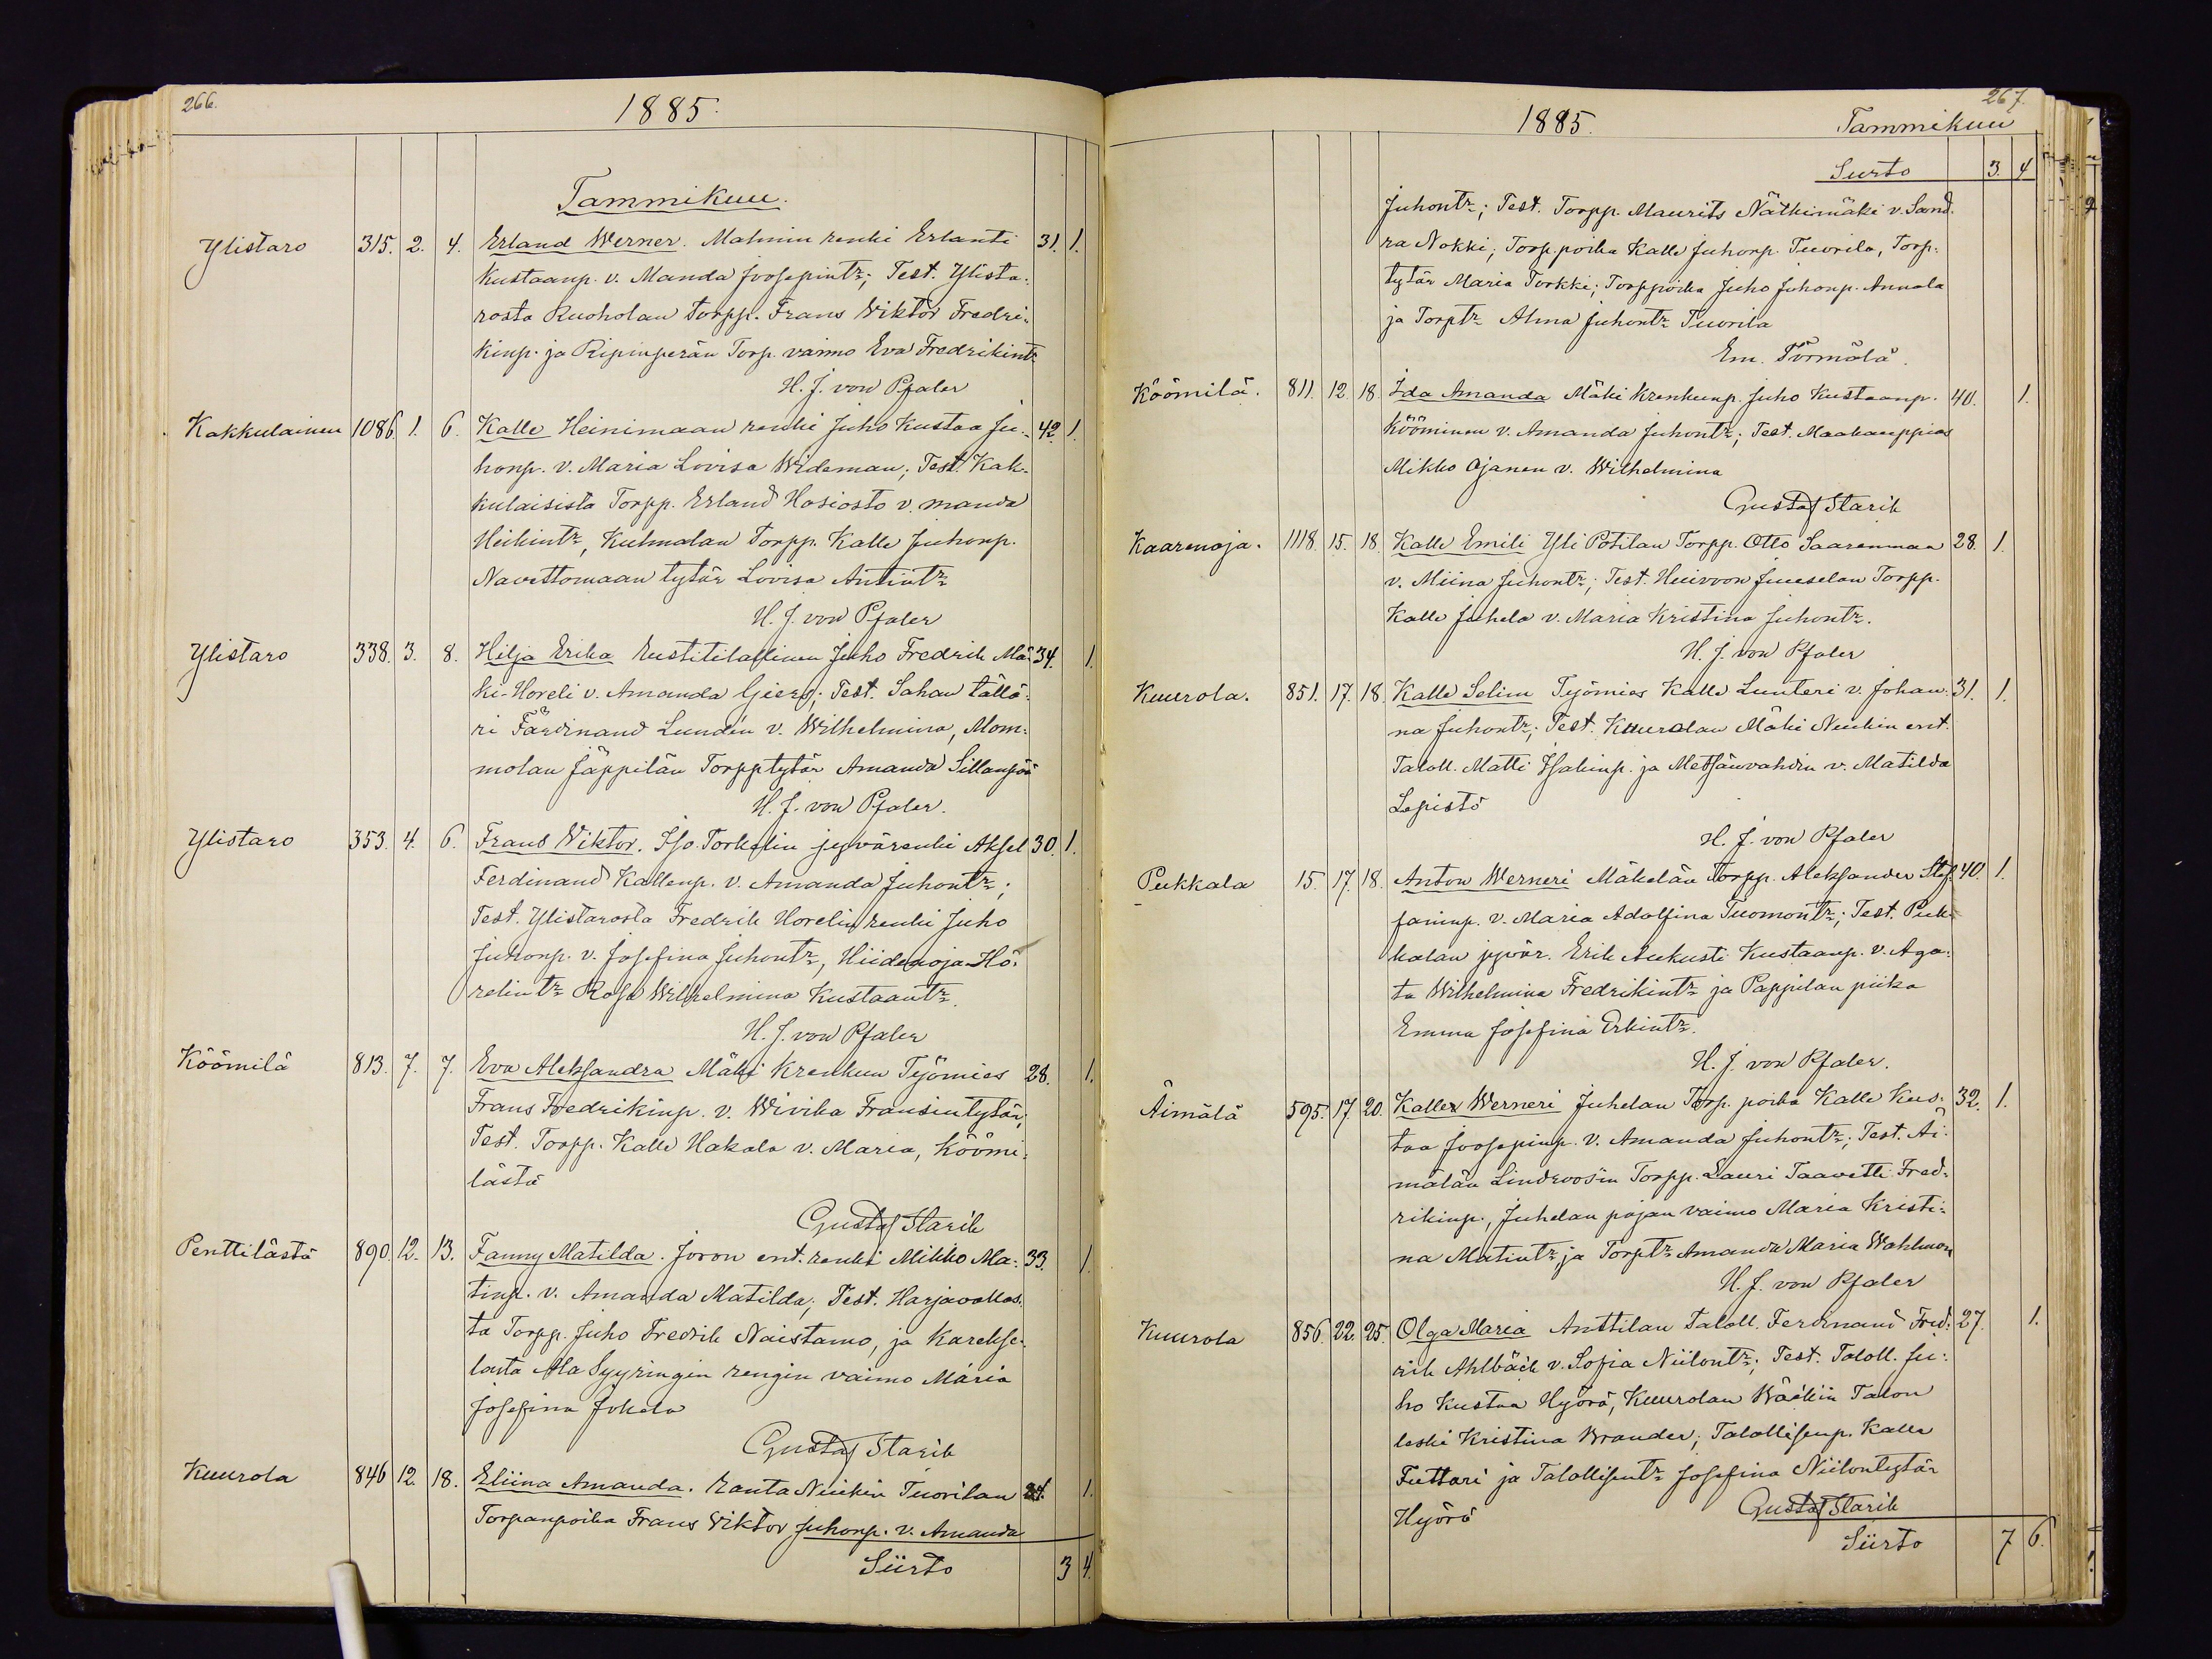 266.
1885.
Tammikuu.
Ylistaro 315. 2. 4. Erland Werner. Malmin renki Erlanti 31. 1.
Kustaanp. v. Manda Joosepintr; Test. Ylista-
rosta Ruoholan Torpp. Frans Wiktor Fredri-
kinp. ja Ripinperän Torp. vaimo Eva Fredrikintr
H. J. von Pfaler
Kakkulainen 1086. 1. 6. Kalle Heinimaan renki Juho Kustaa Ju- 42. 1.
honp. v. Maria Lovisa Wideman; Test. Kak-
kulaisista Torpp. Erland Hosiosto v. Manda
Heikintr, Kuhmalan Torpp. Kalle Juhonp.
Navettomaan tytär Lovisa Antintr
H. J. von Pfaler
Ylistaro 338. 3. 8. Hilja Erika Rustitilallinen Juho Fredrik Mä- 34. 1.
ki-Horeli v. Amanda Giers; Test. Sahan tällä-
ri Färdinand Lundén v. Wilhelmina, Mom-
molan Jäppilän Torpptytär Amanda Sillanpää
H. J. von Pfaler.
Ylistaro 353. 4. 6. Frans Wiktor. Iso-Torkelin jyvärenki Aksel 30. 1.
Ferdinand Kallenp. v. Amanda Juhontr;
Test. Ylistarosta Fredrik Horelin renki Juho
Juhonp. v. Josefina Juhontr, Hiidenoja-Ho-
relintr Rosa Wilhelmina Kustaantr.
H. J. von Pfaler
Köömilä 813. 7. 7. Eva Aleksandra Mäki Krenkun Työmies 28. 1.
Frans Fredrikinp. v. Wivika Fransintytär,
Test. Torpp. Kalle Hakala v. Maria, Köömi-
lästä
Gustaf Starik
Penttilästä 890. 12. 13. Fanny Matilda. Joron ent. renki Mikko Ma- 33. 1.
tinp. v. Amanda Matilda; Test. Harjavallas-
ta Torpp. Juho Fredrik Naistamo, ja Karekse-
lasta Ala Syyringin rengin vaimo Maria
Josefina Jokela
Gustaf Starik
Kuurola 846 12. 18. Eliina Amanda. Ranta Niukin Tuorilan 24. 1.
Torpanpoika Frans Wiktor Juhonp. v. Amanda
Siirto 3 4.
267.
1885. Tammikuu
Siirto 3. 4
Juhontr; Test. Torpp. Maurits Nätkimäki v. Sand-
ra Nokki; Torp.poika Kalle Juhonp. Tuorila, Torp-
tytär Maria Torkki; Torppoika Juho Juhonp. Annala
ja Torptr Alma Juhontr Tuorila
Em. Törmälä.
Köömilä. 811. 12. 18. Ida Amanda Mäki Krenkunp. Juho Kustaanp. 40. 1.
Kööminen v. Amanda Juhontr; Test. Maakauppias
Mikko Ojanen v. Wilhelmina
Gustaf Starik
Kaarenoja. 1118. 15. 18. Kalle Emili Yli Potilan Torpp. Otto Saarenmaa 28. 1.
v. Miina Juhontr; Test. Huivoon Juuselan Torpp.
Kalle Juhela v. Maria Kristina Juhontr.
H. J. von Pfaler
Kuurola. 851. 17. 18. Kalle Selim Työmies Kalle Lunteri v. Johan- 31. 1.
na Juhontr; Test. Kuurolan Mäki Niukin ent.
Taloll. Matti Isakinp. ja Metsänvahdin v. Matilda
Lepistö
H. J. von Pfaler
Pukkala 15. 17. 18. Anton Werneri Mäkelän Torpp. Aleksander Stef- 40. 1.
faninp. v. Maria Adolfina Tuomontr; Test. Puk-
kalan jyvär. Erik Aukusti Kustaanp. v. Aga-
ta Wilhelmina Fredrikintr ja Pappilan piika
Emma Josefina Erkintr.
H. J. von Pfaler.
Äimälä 595. 17 20. Kalle Werneri Juhelan Torp. poika Kalle Kus- 32. 1.
taa Joosepinp. v. Amanda Juhontr; Test. Äi-
mälän Lindroosin Torpp. Lauri Taavetti Fred-
rikinp., Juhelan pojan vaimo Maria Kristi-
na Matintr, ja Torptr Amanda Maria Wahlman
H. J. von Pfaler
Kuurola 856. 22. 25. Olga Maria Anttilan Taloll. Ferdinand Fred- 27. 1.
rik Ahlbäck v. Sofia Niilontr; Test. Taloll. Ju-
ho Kustaa Hyörä, Kuurolan Wäckin Talon
leski Kristina Brander; Talollisenp. Kalle
Futtari ja Talollisentr Josefina Niilontytär
Hyörä Gustaf Starik
Siirto 7 6.